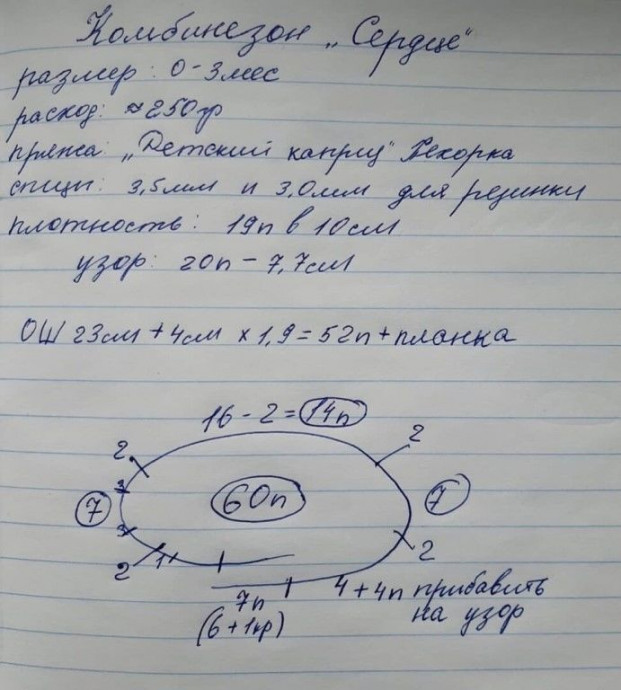 Комбинезон „Сердце"
размер: 0-3мес
расход: ≈250гр
пряжа: „Детский каприз" Пехорка
спицы: 3,5мм и 3,0мм для резинки
плотность: 19п в 10см
узор: 20п - 7,7см
ОШ 23см + 4см × 1,9 = 52п + планка
16 - 2 = 14п
2
2
3
7
60п
7
3
2
1
2
7п
4 + 4п прибавить
(6 + 1кр)
на узор